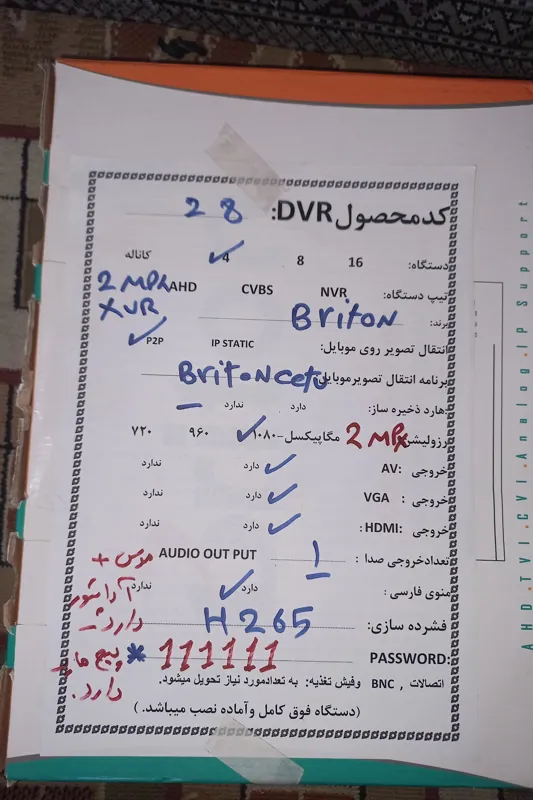 کدمحصول DVR: 28
دستگاه: 16 8 4 کاناله
تیپ دستگاه: NVR CVBS AHD 2 MPX
XVR
برند: Briton
انتقال تصویر روی موبایل: IP STATIC P2P
برنامه انتقال تصویرموبایل: Briton
هارد ذخیره ساز: دارد ندارد
رزولیشن 2 MPX مگاپیکسل-۱۰۸۰ ۹۶۰ ۷۲۰
خروجی AV: دارد ندارد
خروجی : VGA دارد ندارد
خروجی HDMI: دارد ندارد
تعدادخروجی صدا : 1 AUDIO OUT PUT
منوی فارسی : دارد ندارد
فشرده سازی: H265
PASSWORD: 111111 *
موس +
آداپتور
دارد
پیچ ها
دارد.
اتصالات , BNC وفیش تغذیه: به تعدادمورد نیاز تحویل میشود.
(دستگاه فوق کامل وآماده نصب میباشد. )
AHD.TVI.CVI.Analog.IP Support